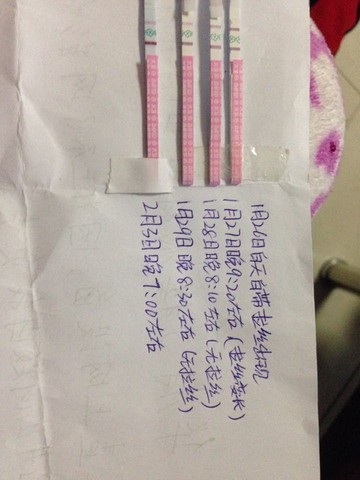 1月26日白天白带拉丝出现
1月27日晚9:20左右(拉丝变长)
1月28日晚8:10左右(无拉丝)
1月29日晚8:30左右(无拉丝)
2月3日晚7:00左右